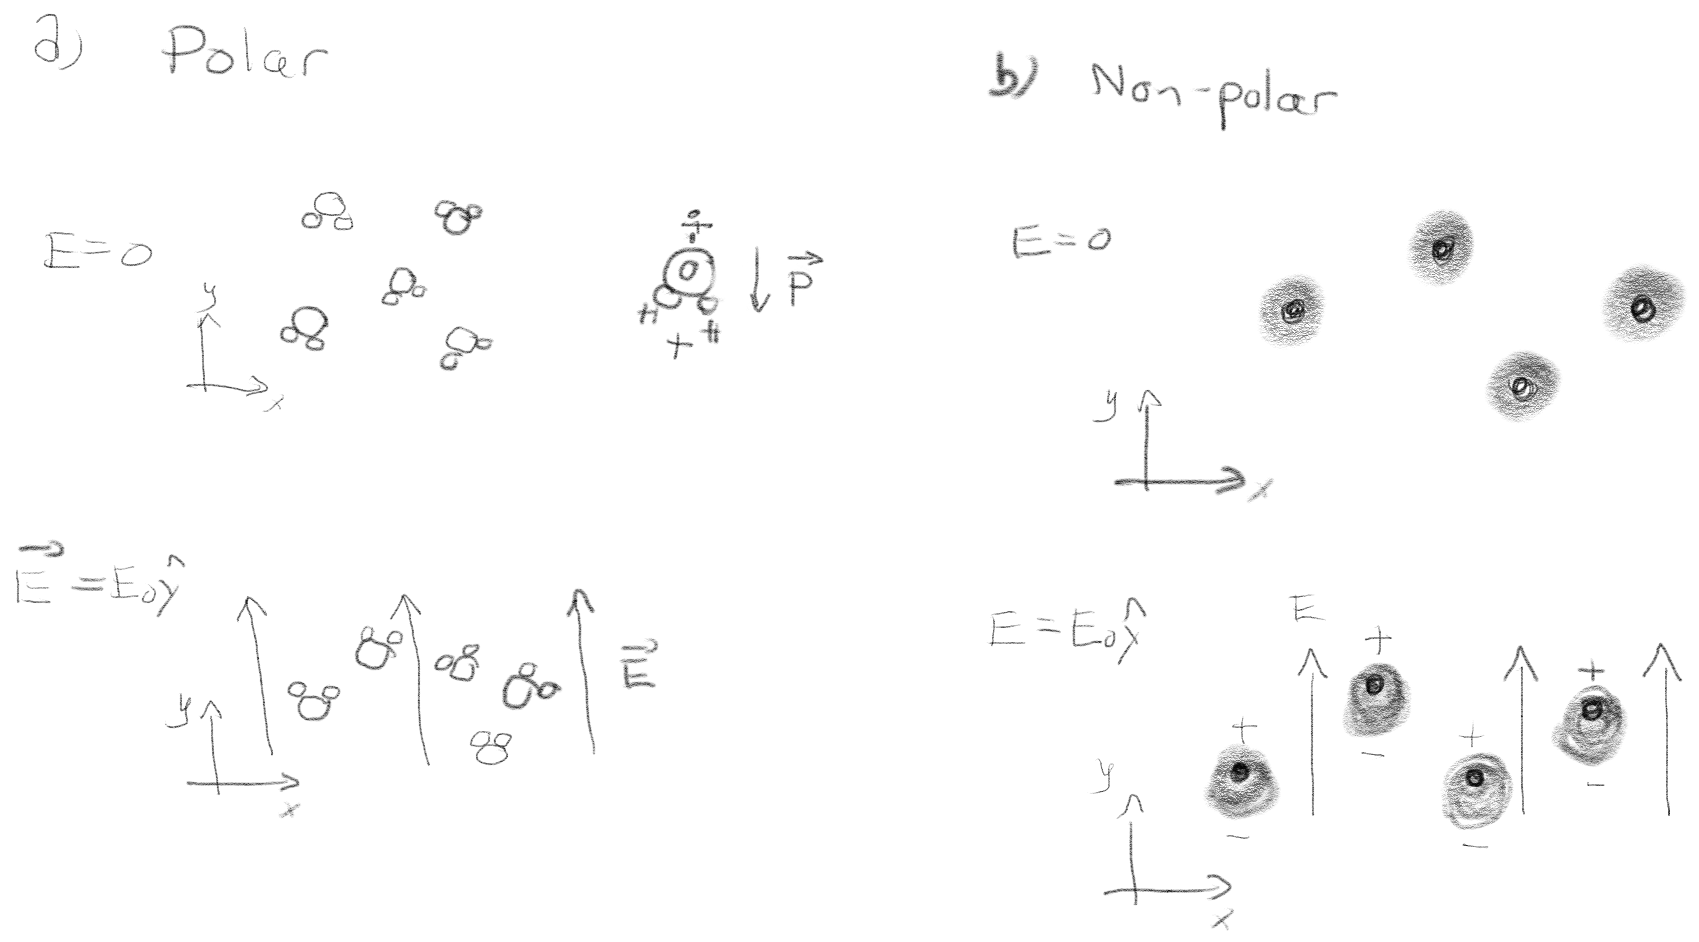 a) Polar
E=0
y
x
÷
O
H
H
+
P
E = E₀ŷ
y
x
E
b) Non-polar
E=0
y
x
E = E₀ŷ
E
+
-
+
-
+
-
+
-
y
x